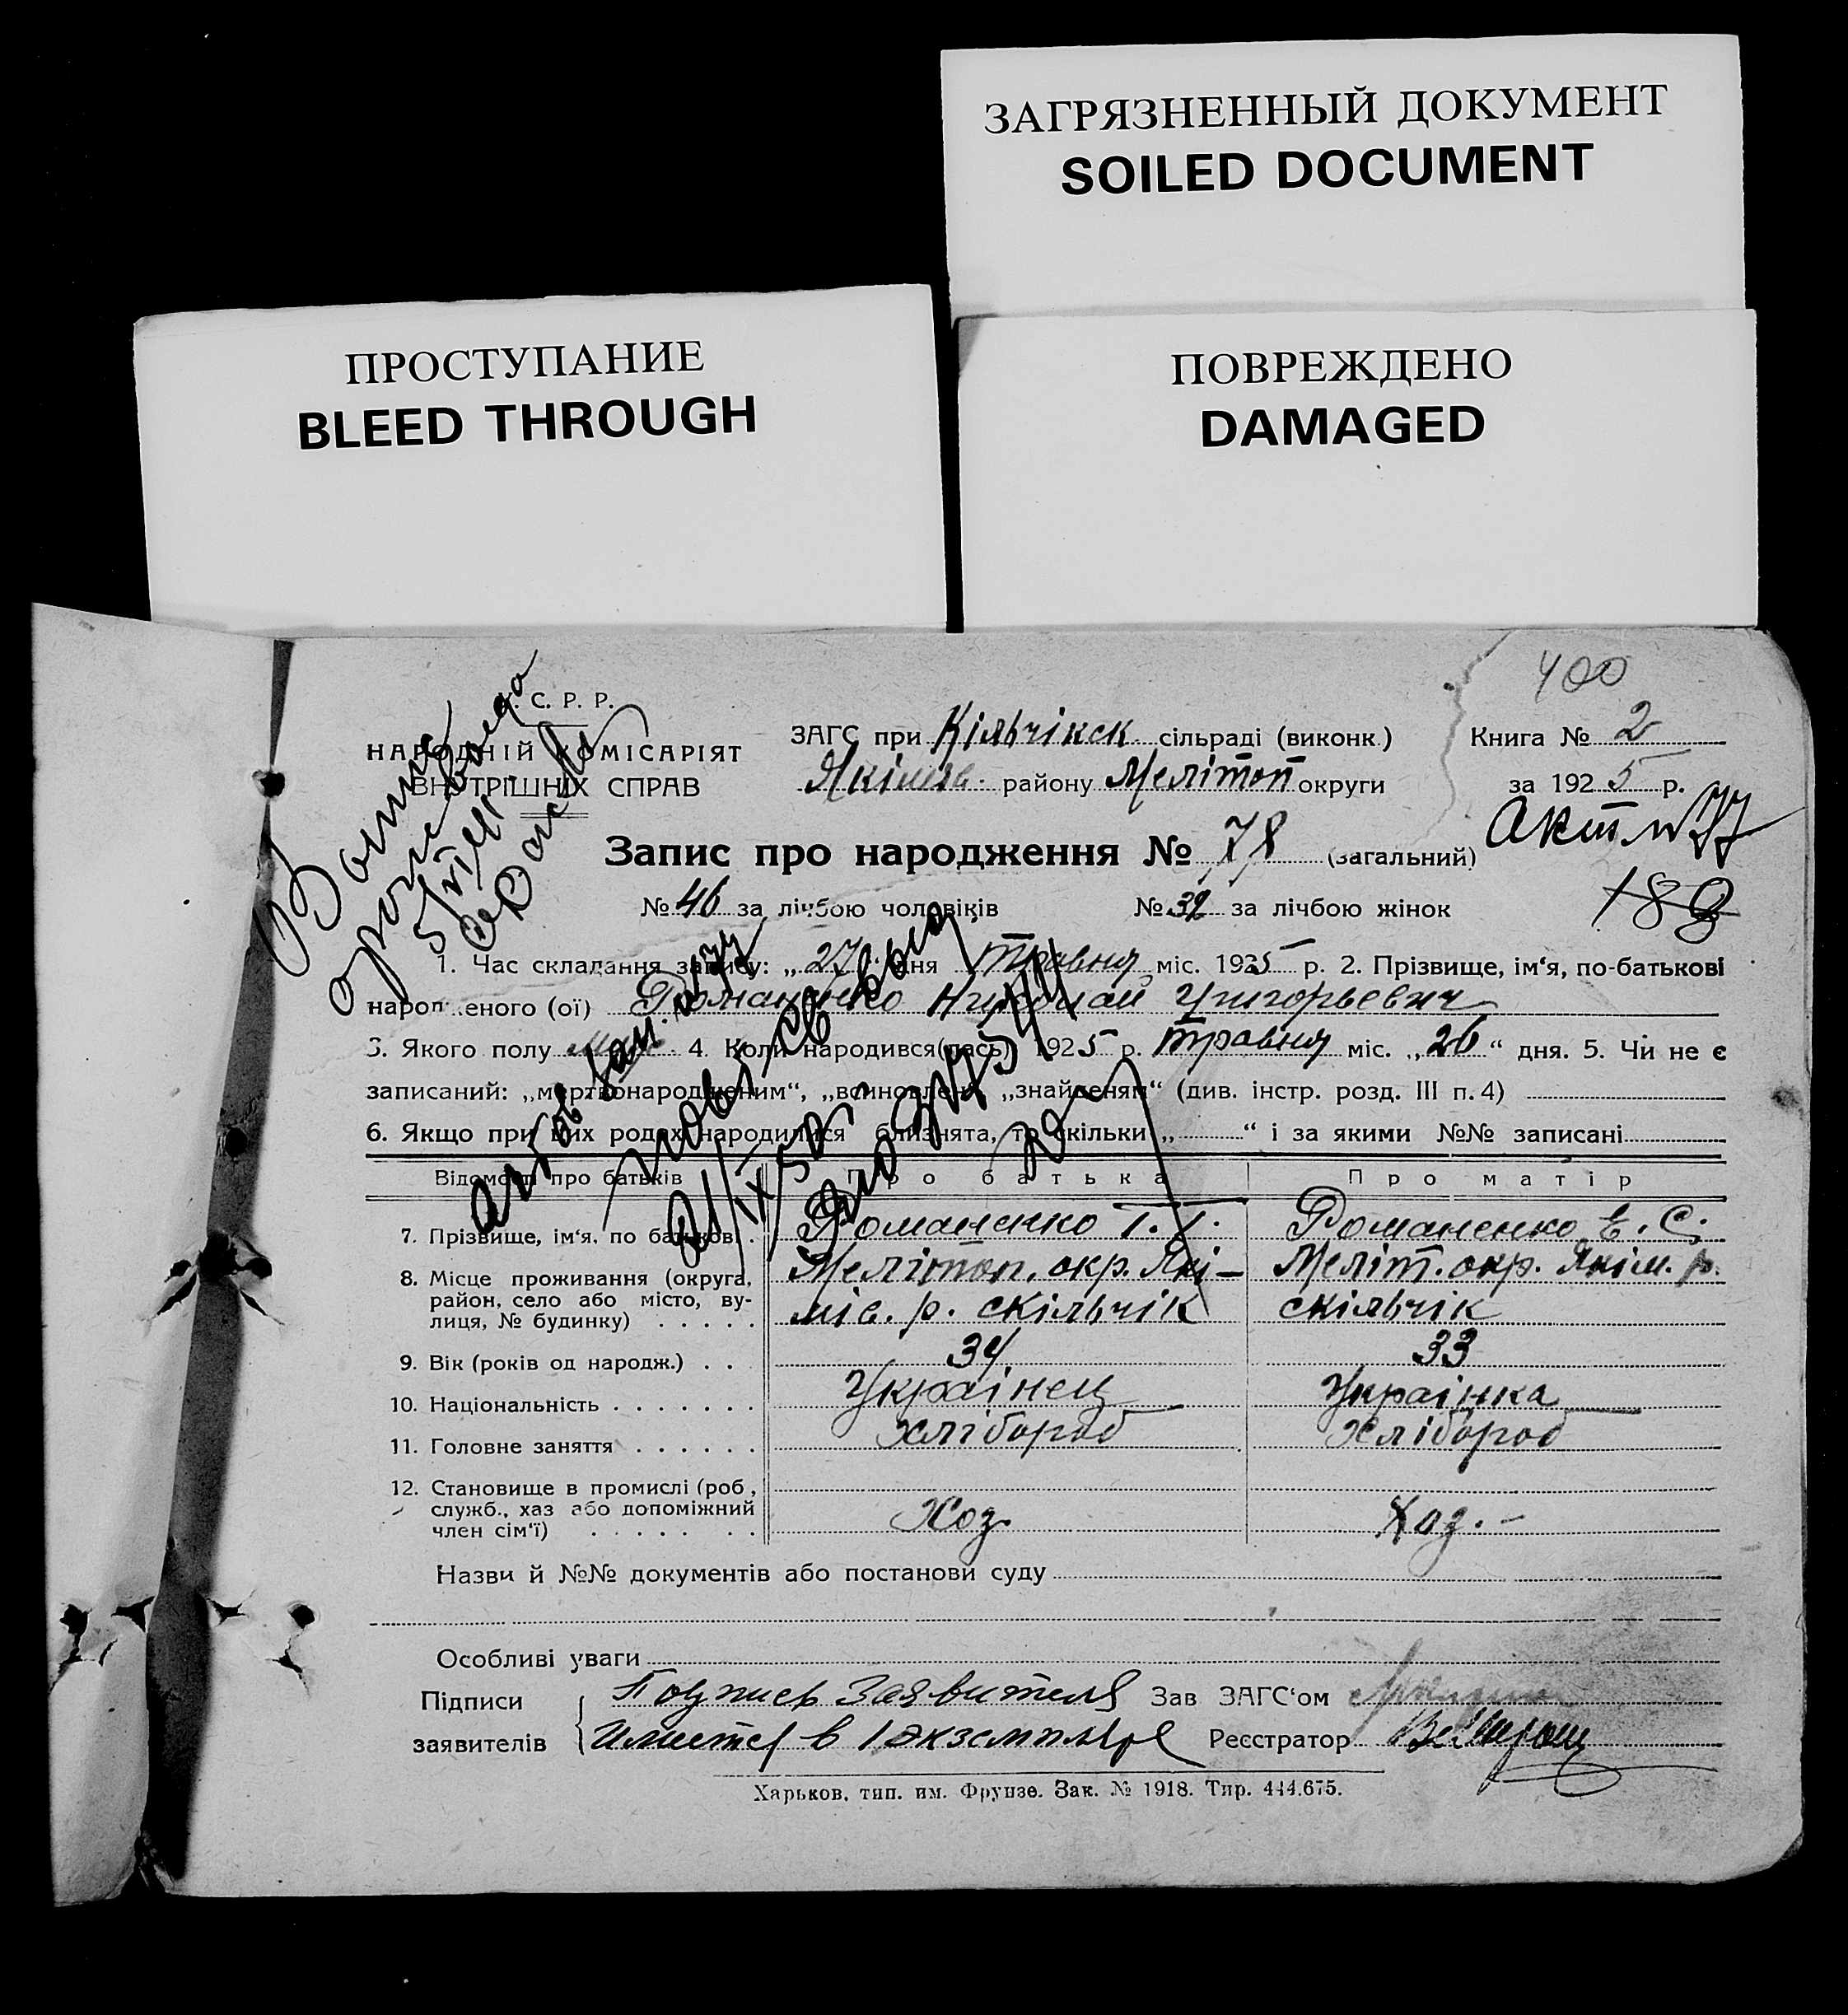 ЗАГРЯЗНЕННЫЙ ДОКУМЕНТ
SOILED DOCUMENT
ПРОСТУПАНИЕ
BLEED THROUGH
ПОВРЕЖДЕНО
DAMAGED
400
С. Р. Р.
НАРОДНІЙ КОМІСАРІЯТ
ВНУТРІШНІХ СПРАВ
ЗАГС при Кільчікск сільраді (виконк.)
Якімів. району Меліто̄п округи
Книга № 2
за 1925 р.
Акт № 77
Запис про народження № 78 (загальний)
№ 46 за лічбою чоловіків № 32 за лічбою жінок
188
1. Час складання запису: „27" дня травня міс. 1925 р. 2. Прізвище, ім'я, по-батькові
народженого (ої) Романенко Николай Григорьевич
3. Якого полу 4. Коли народився(лась) 1925 р. травня міс. „26" дня. 5. Чи не є
записаний: „мертвонародженим", „всиновлен „знайденям" (див. інстр. розд. III п. 4)
6. Якщо при цих родах народилися близнята, то скільки „ " і за якими №№ записані
Відомості про батьків Про батька Про матір
7. Прізвище, ім'я, по батькові Романенко Г. Г. Романенко Е. С.
8. Місце проживання (округа, район, село або місто, вулиця, № будинку) Мелітоп. окр. Які-
мів. р. с Кільчік Меліт. окр. Якім. р.
с Кільчік
9. Вік (років од народж.) 34 33
10. Національність Українец Українка
11. Головне заняття хлібороб хлібороб
12. Становище в промислі (роб, служб., хаз або допоміжний член сім'ї) Хоз. Хоз.
Назви й №№ документів або постанови суду
Особливі уваги
Підписи
заявителів
Подпись Заявителя
имеется в 1 экземпляре
Зав ЗАГС'ом
Реєстратор
Харьков, тип. им. Фрунзе. Зак. № 1918. Тир. 444.675.